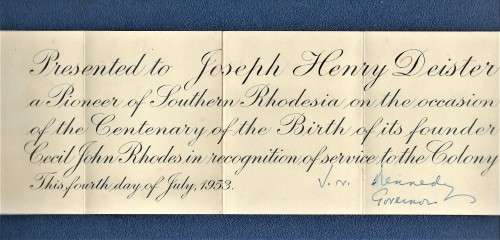 Presented to Joseph Henry Deister
a Pioneer of Southern Rhodesia on the occasion
of the Centenary of the Birth of its founder
Cecil John Rhodes in recognition of service to the Colony
This fourth day of July, 1953.
J. N. Kennedy
Governor